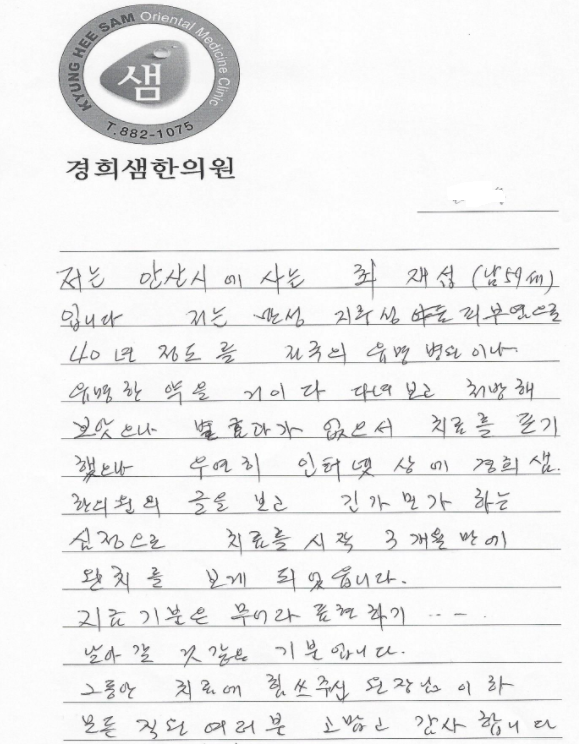 KYUNG HEE SAM Oriental Medicine Clinic
샘
T.882-1075
경희샘한의원
저는 안산시에 사는 최재성 (남59세)
입니다 저는 만성 지루성 피부염으로
40년 정도를 전국의 유명 병원이나
유명한 약을 거이 다 다녀보고 처방해
보았으나 별 효과가 없으서 치료를 포기
했으나 우연히 인터넷 상에 경희샘.
한의원의 글을 보고 긴가 민가 하는
심정으로 치료를 시작 3개월 만에
완치를 보게 되었읍니다.
지금 기분은 무어라 표현하기 ....
날아 갈 것 같은 기분입니다.
그동안 치료에 힘쓰주신 원장님 이하
모든 직원 여러분 고맙고 감사합니다